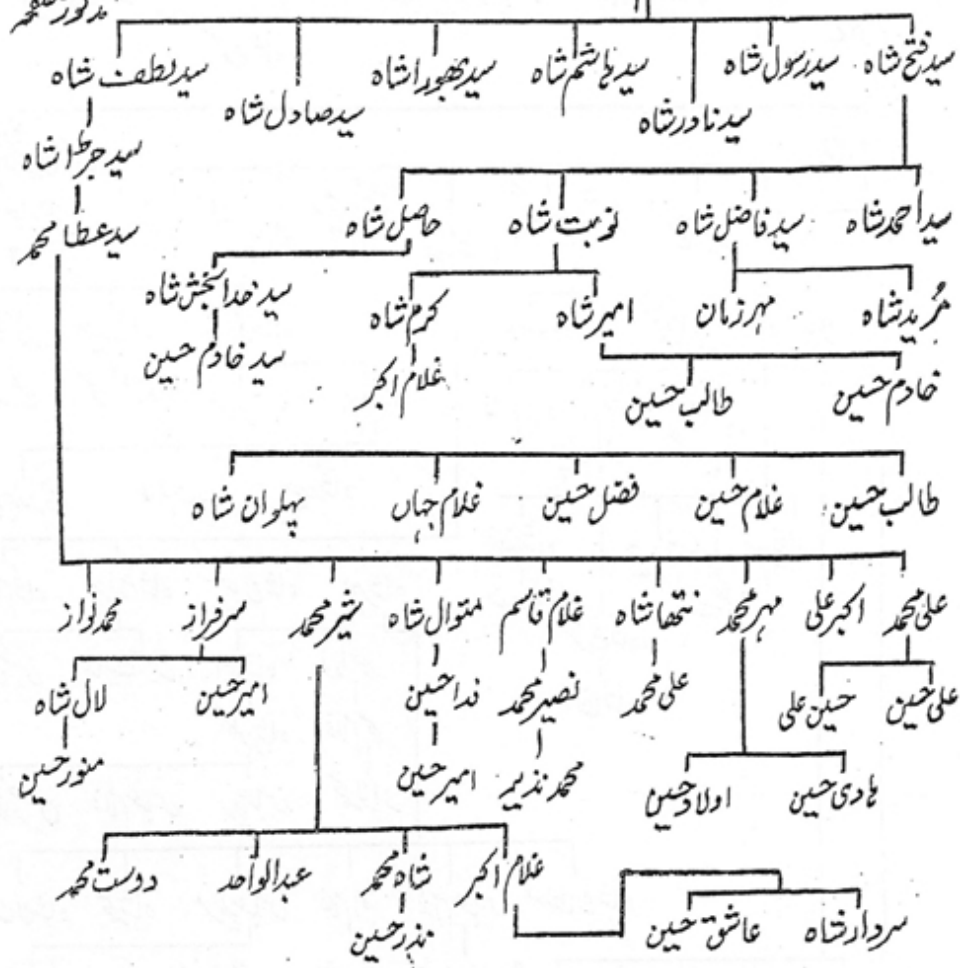 سید فتح شاہ سید رسول شاہ سید ہاشم شاہ سید بھورا شاہ سید لطف شاہ
سید نادر شاہ سید صادل شاہ
سید جڑا شاہ
سید احمد شاہ سید فاضل شاہ نوبت شاہ حاصل شاہ سید عطا محمد
مُرید شاہ مہر زمان امیر شاہ کرم شاہ سید خدا بخش شاہ
خادم حسین طالب حسین غلام اکبر سید خادم حسین
طالب حسین غلام حسین فضل حسین غلام جہاں پہلوان شاہ
علی محمد اکبر علی مہر محمد نتھا شاہ غلام قاسم متوال شاہ شیر محمد سرفراز محمد نواز
علی حسین حسین علی علی محمد نصیر محمد فدا حسین امیر حسین لال شاہ
ہادی حسین اولاد حسین محمد نذیر امیر حسین منور حسین
غلام اکبر شاہ محمد عبدالواحد دوست محمد
سردار شاہ عاشق حسین نذر حسین